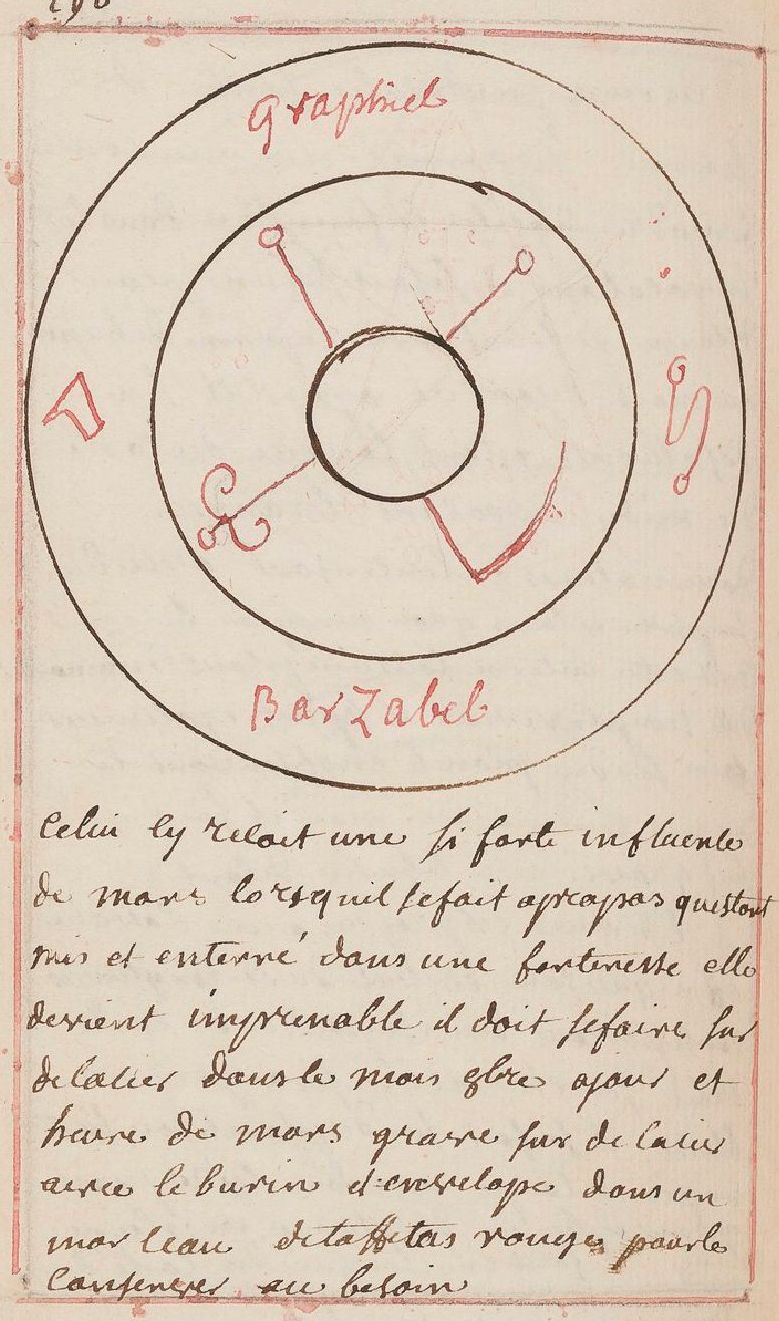 290
Graphiel
BarZabel
Celui cy recoit une si forte influence
de mars lorsquil se fait apropos questant
mis et enterré dans une forteresse elle
devient imprenable il doit se faire sur
delacier dans le mois 8bre ajour et
heure de mars grave sur de lacier
avec le burin et envelope dans un
morceau detaffetas rouge pour le
Conserver au besoin